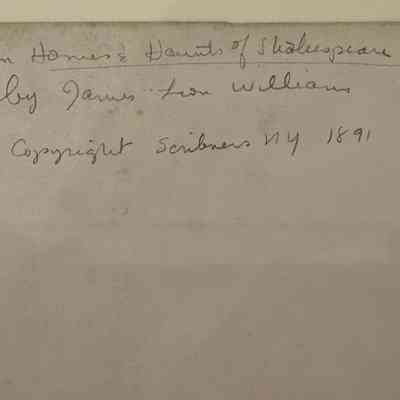 n Homes & Haunts of Shakespeare
by James Leon Williams
Copyright Scribners NY 1891